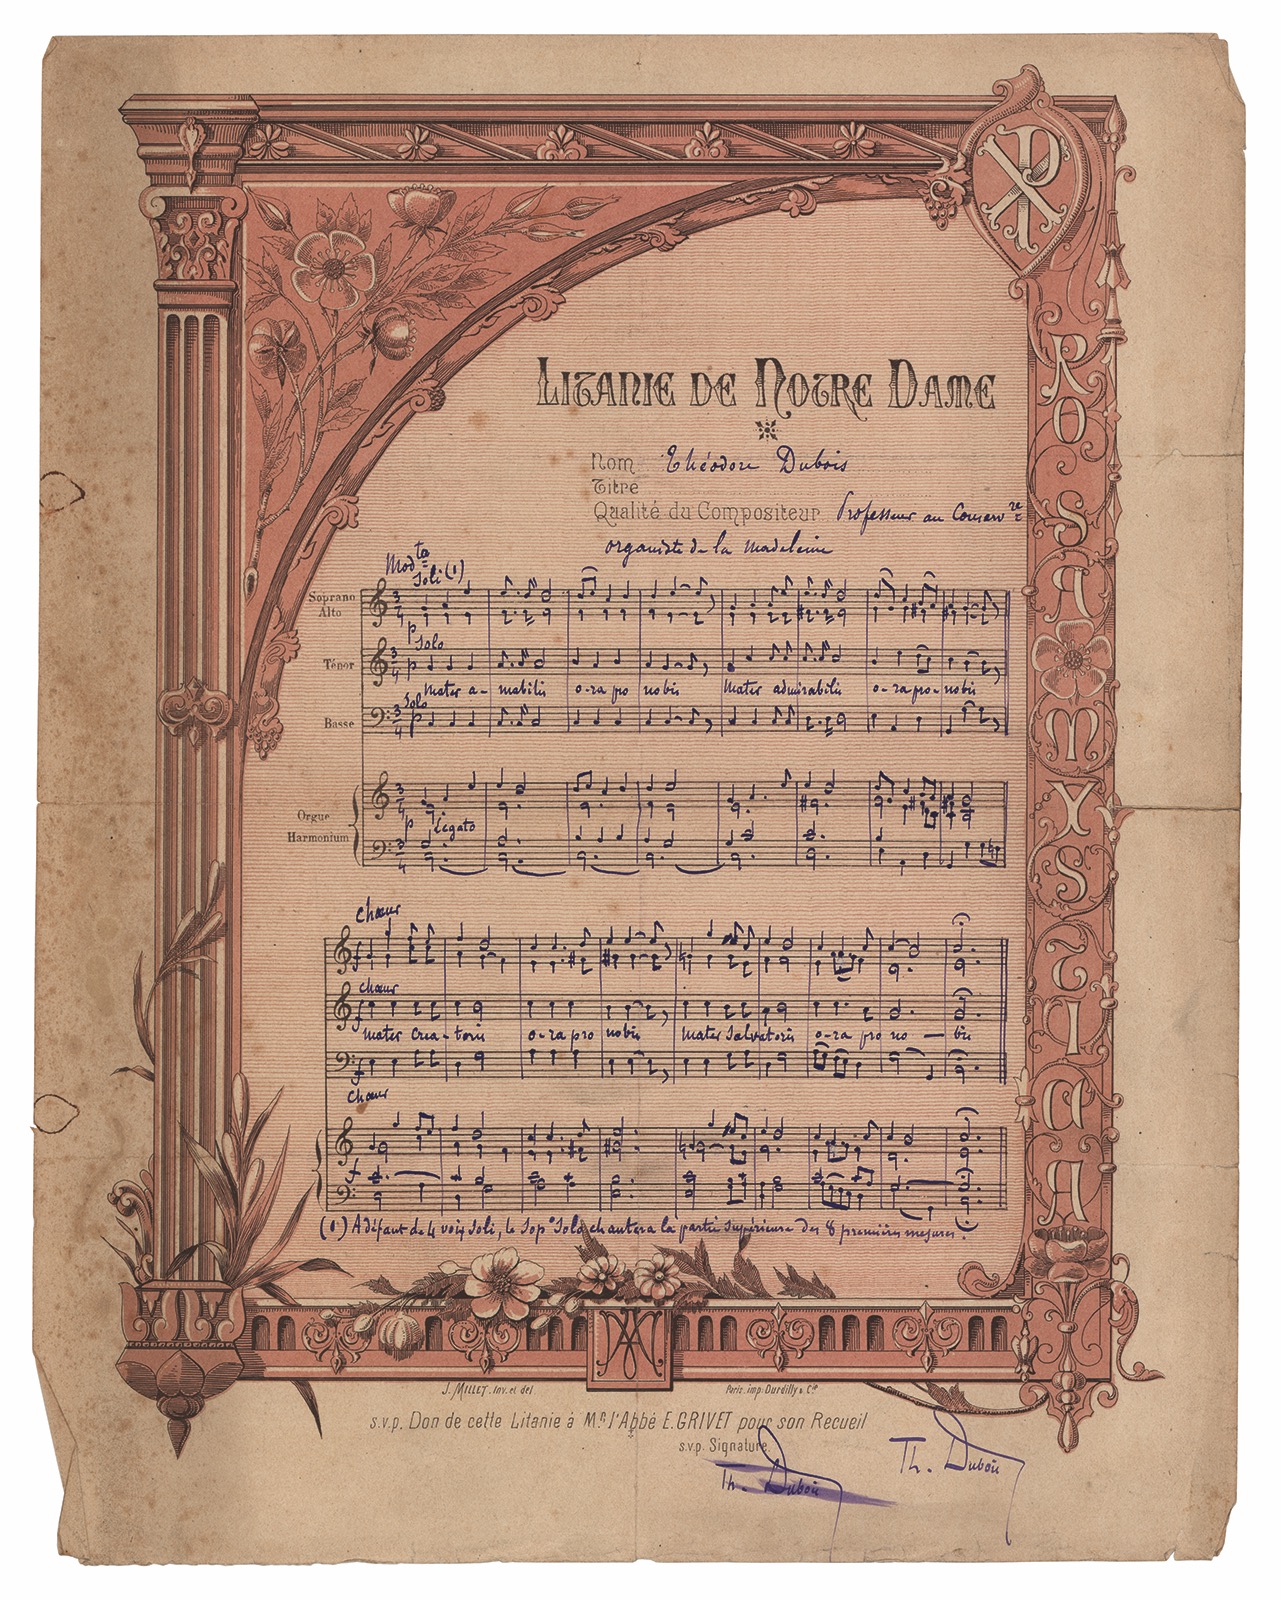 ROSA MYSTICA
LITANIE DE NOTRE DAME
Nom Théodore Dubois
Titre
Qualité du Compositeur Professeur au Conserv.re
organiste de la Madeleine
Modto
Soli (1)
Soprano
Alto
p
Solo
Ténor
p
Mater a-mabilis o-ra pro nobis Mater admirabilis o-ra pro-nobis
Solo
Basse
p
Orgue
Harmonium
p legato
Chœur
f
chœur
f
mater Crea-toris o-ra pro nobis Mater Salvatoris o-ra pro no-bis
f
Chœur
f
(1) A défaut de 4 voix soli, le Sop° Solo chantera la partie supérieure des 8 premières mesures.
J. MILLET. Inv. et del
Paris. imp. Durdilly & Cie
s.v.p. Don de cette Litanie à Mr. l'Abbé E. GRIVET pour son Recueil
s.v.p. Signature.
Th. Dubois
Th. Dubois